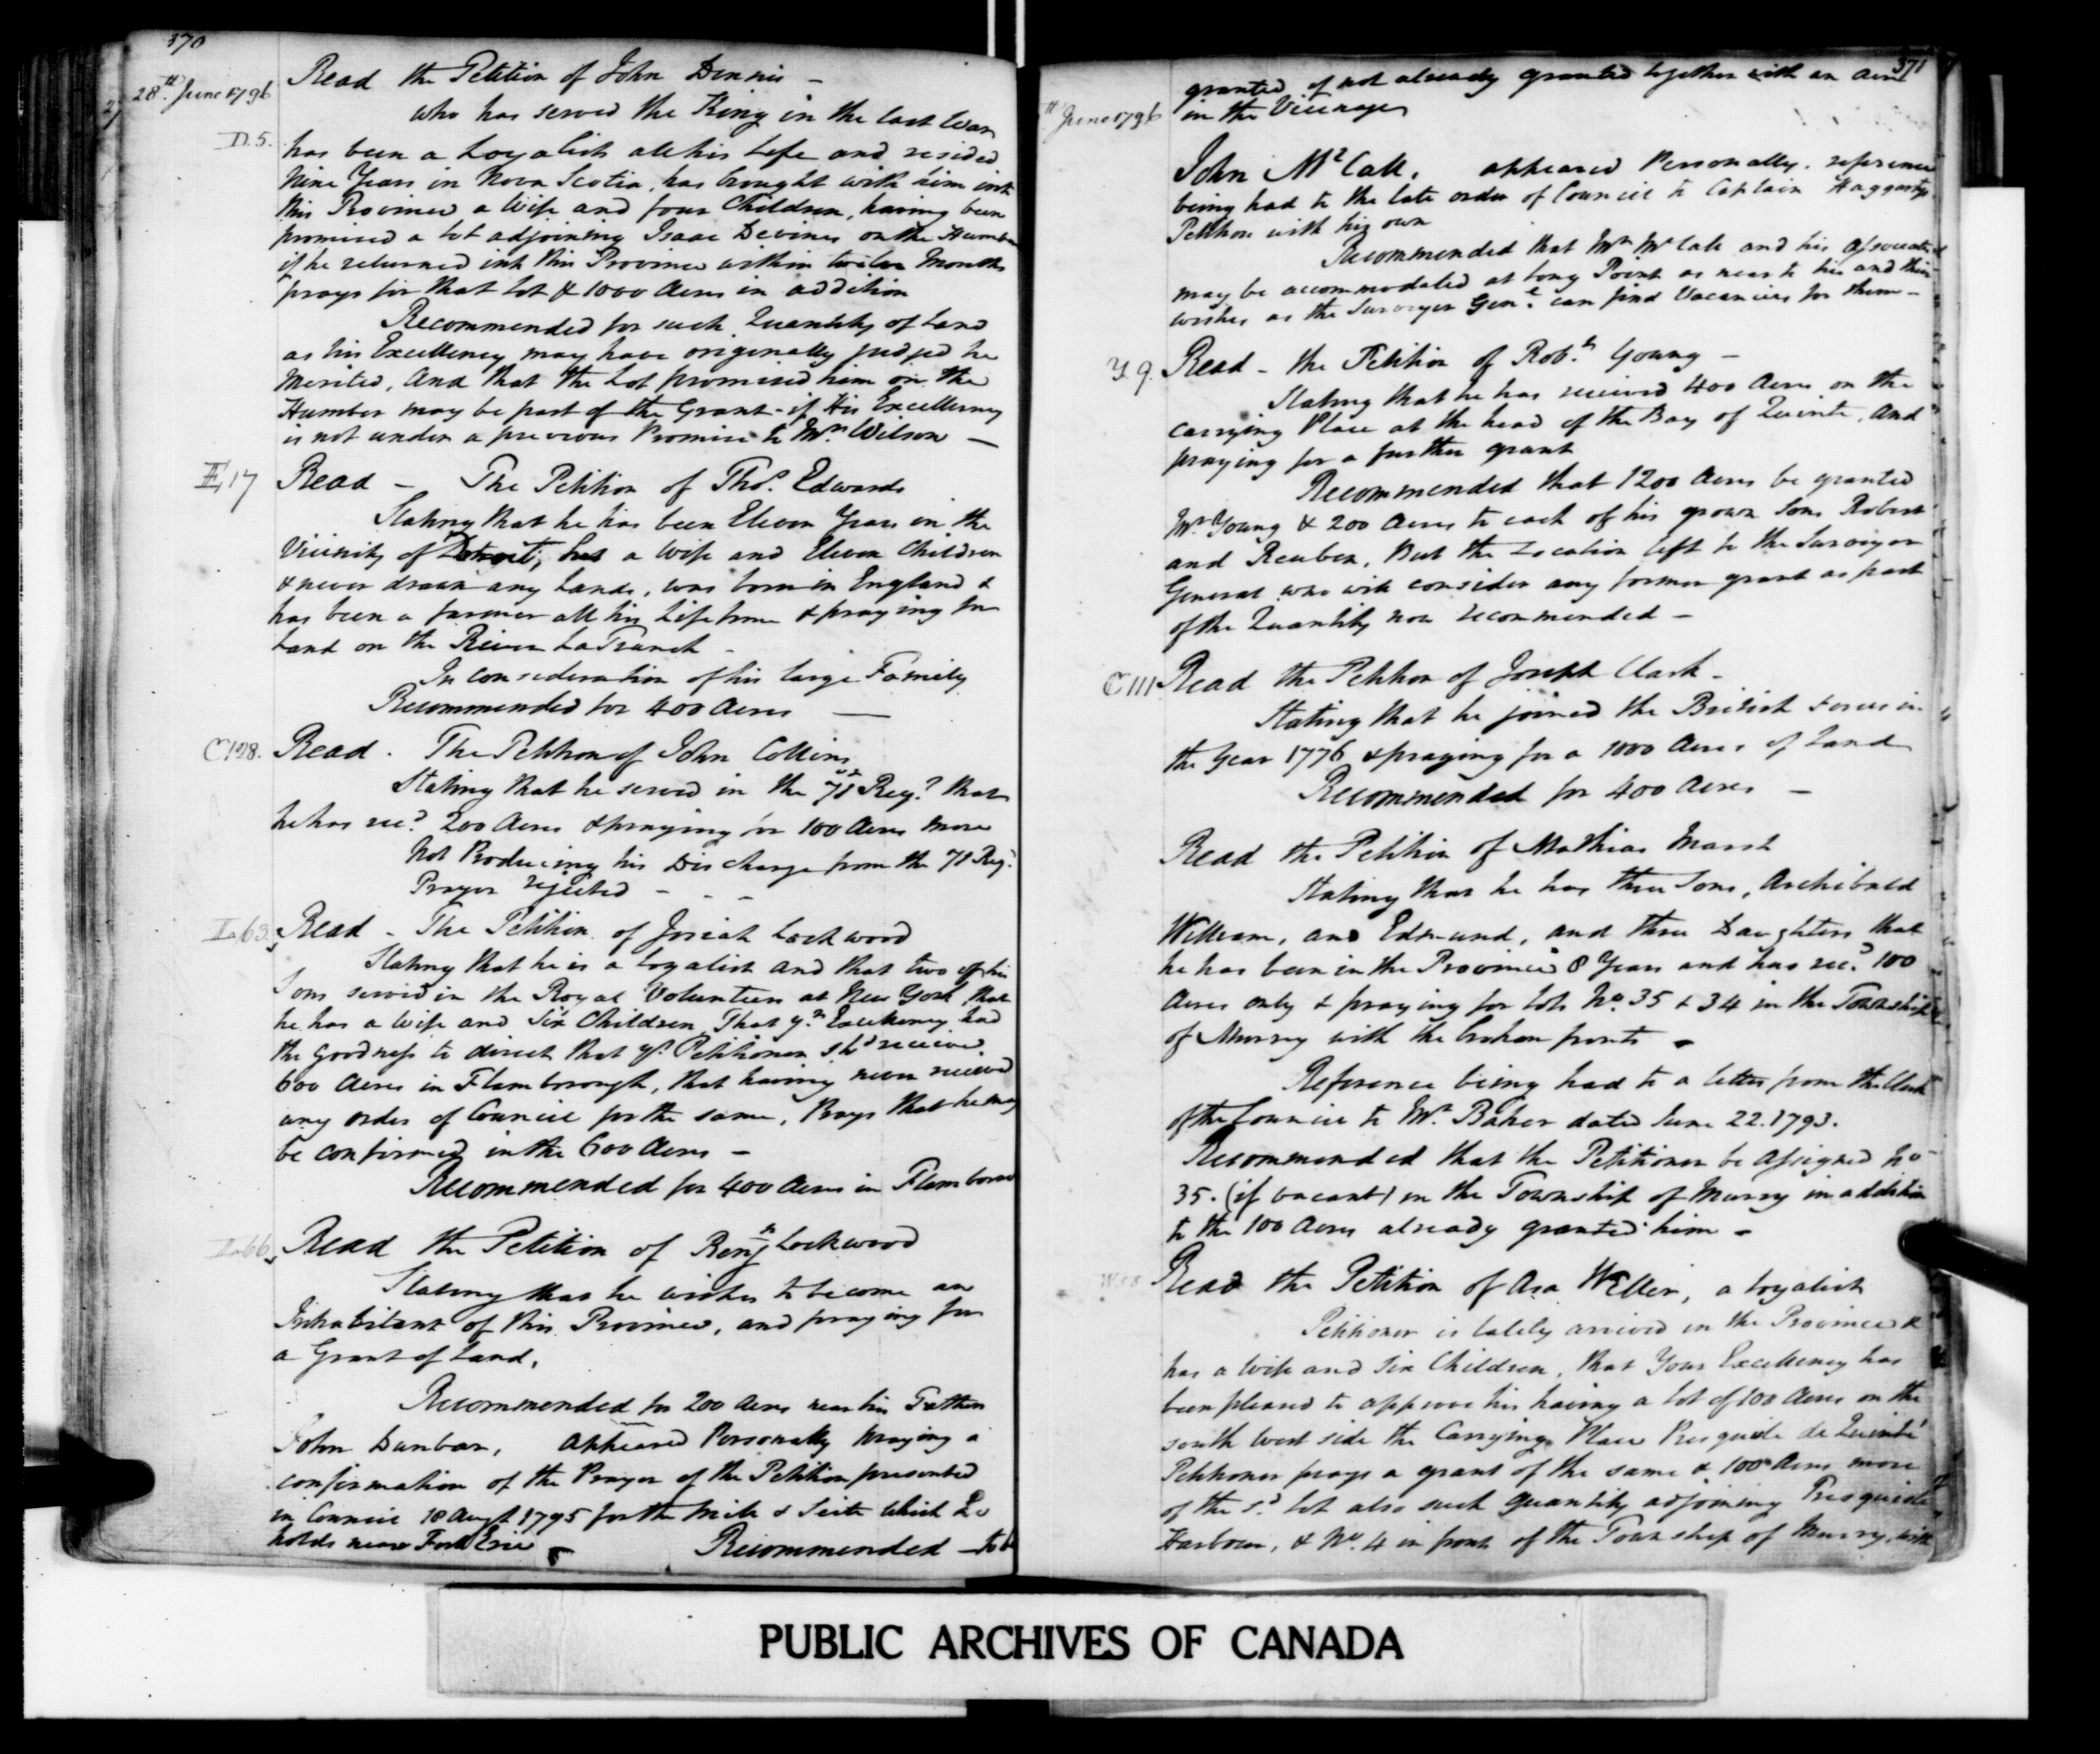 370
28th June 1796
Read the Petition of John Dennis —
who has served the King in the last War
D. 5.
has been a Loyalist all his Life and resided
Nine Years in Nova Scotia, has brought with him into
this Province a Wife and four Children, having been
promised a lot adjoining Isaac Devines on the Humber
if he returned into this Province within twelve Months
prays for that lot & 1000 Acres in addition
Recommended for such Quantity of Land
as his Excellency may have originally judged he
Merited, And that the Lot promised him on the
Humber may be part of the Grant - if His Excellency
is not under a previous Promise to Mr. Wilson —
E, 17
Read — The Petition of Thos. Edwards
Stating that he has been Eleven Years in the
Vicinity of Detroit, has a Wife and Eleven Children
& never drawn any Lands, was born in England &
has been a farmer all his Life time & praying for
Land on the River La Tranch -
In consideration of his large Family
Recommended for 400 Acres —
C 128.
Read - The Petition of John Collins
Stating that he served in the 71st Regt. that
he has recd. 200 Acres & praying for 100 Acres more
Not Producing his Discharge from the 71 Regt.
Prayer rejected - - -
L 63.
Read - The Petition of Josiah Lockwood
Stating that he is a Loyalist and that two of his
Sons served in the Royal Volunteers at New York that
he has a Wife and Six Children, That yr. Excellency had
the goodness to direct that yr. Petitioner shd receive
600 Acres in Flamborough, that having never received
any order of Council for the same, Prays that he may
be confirmed in the 600 Acres -
Recommended for 400 Acres in Flamboro
L 66.
Read the Petition of Benjn Lockwood
Stating that he wishes to become an
Inhabitant of this Province, and praying for
a Grant of Land.
Recommended for 200 Acres near his Father
John Dunbar, appeared Personally praying a
confirmation of the Prayer of the Petition presented
in Council 18 Augt 1795 for the Mill & Seite which he
holds near Fort Erie
Recommended - to be
371
granted if not already granted together with an acre
in the Vicinage
June 1796
John McCall, appeared Personally. reference
being had to the late order of Council to Captain Haggarty
Petition with his own
Recommended that Mr. McCall and his associates
may be accommodated at Long Point as near to his and their
wishes as the Surveyor Genl. can find Vacancies for them -
Y. 9.
Read - the Petition of Robt. Young -
Stating that he has received 400 Acres on the
carrying Place at the head of the Bay of Quinte, And
praying for a further grant
Recommended that 1200 Acres be granted
Mr. Young & 200 Acres to each of his grown Sons Robert
and Reuben, But the Location left to the Surveyor
General who will consider any former grant as part
of the Quantity now recommended -
C 111
Read the Petition of Joseph Clark -
Stating that he joined the British Forces in
the Year 1776 & praying for a 1000 Acres of Land
Recommended for 400 Acres -
Read the Petition of Mathias Marsh
Stating that he has three Sons, Archibald
William, and Edmund, and three Daughters that
he has been in the Province 8 Years and has recd. 100
Acres only & praying for lots No. 35 & 34 in the Township
of Murray with the broken fronts -
Reference being had to a letter from the Clerk
of the Council to Mr. Baker dated June 22. 1793.
Recommended that the Petitioner be assigned No
35. (if vacant) in the Township of Murray in addition
to the 100 Acres already granted him -
Read the Petition of Asa Weller, a loyalist
Petitioner is lately arrived in the Province &
has a Wife and Six Children, that Your Excellency has
been pleased to approve his having a lot of 100 Acres on the
south west side the Carrying Place Presquile de Quinté
Petitioner prays a grant of the same & 100 Acres more
of the sd. lot also such quantity adjoining Presquile
Harbour, & No. 4 in front of the Township of Murray, with
PUBLIC ARCHIVES OF CANADA